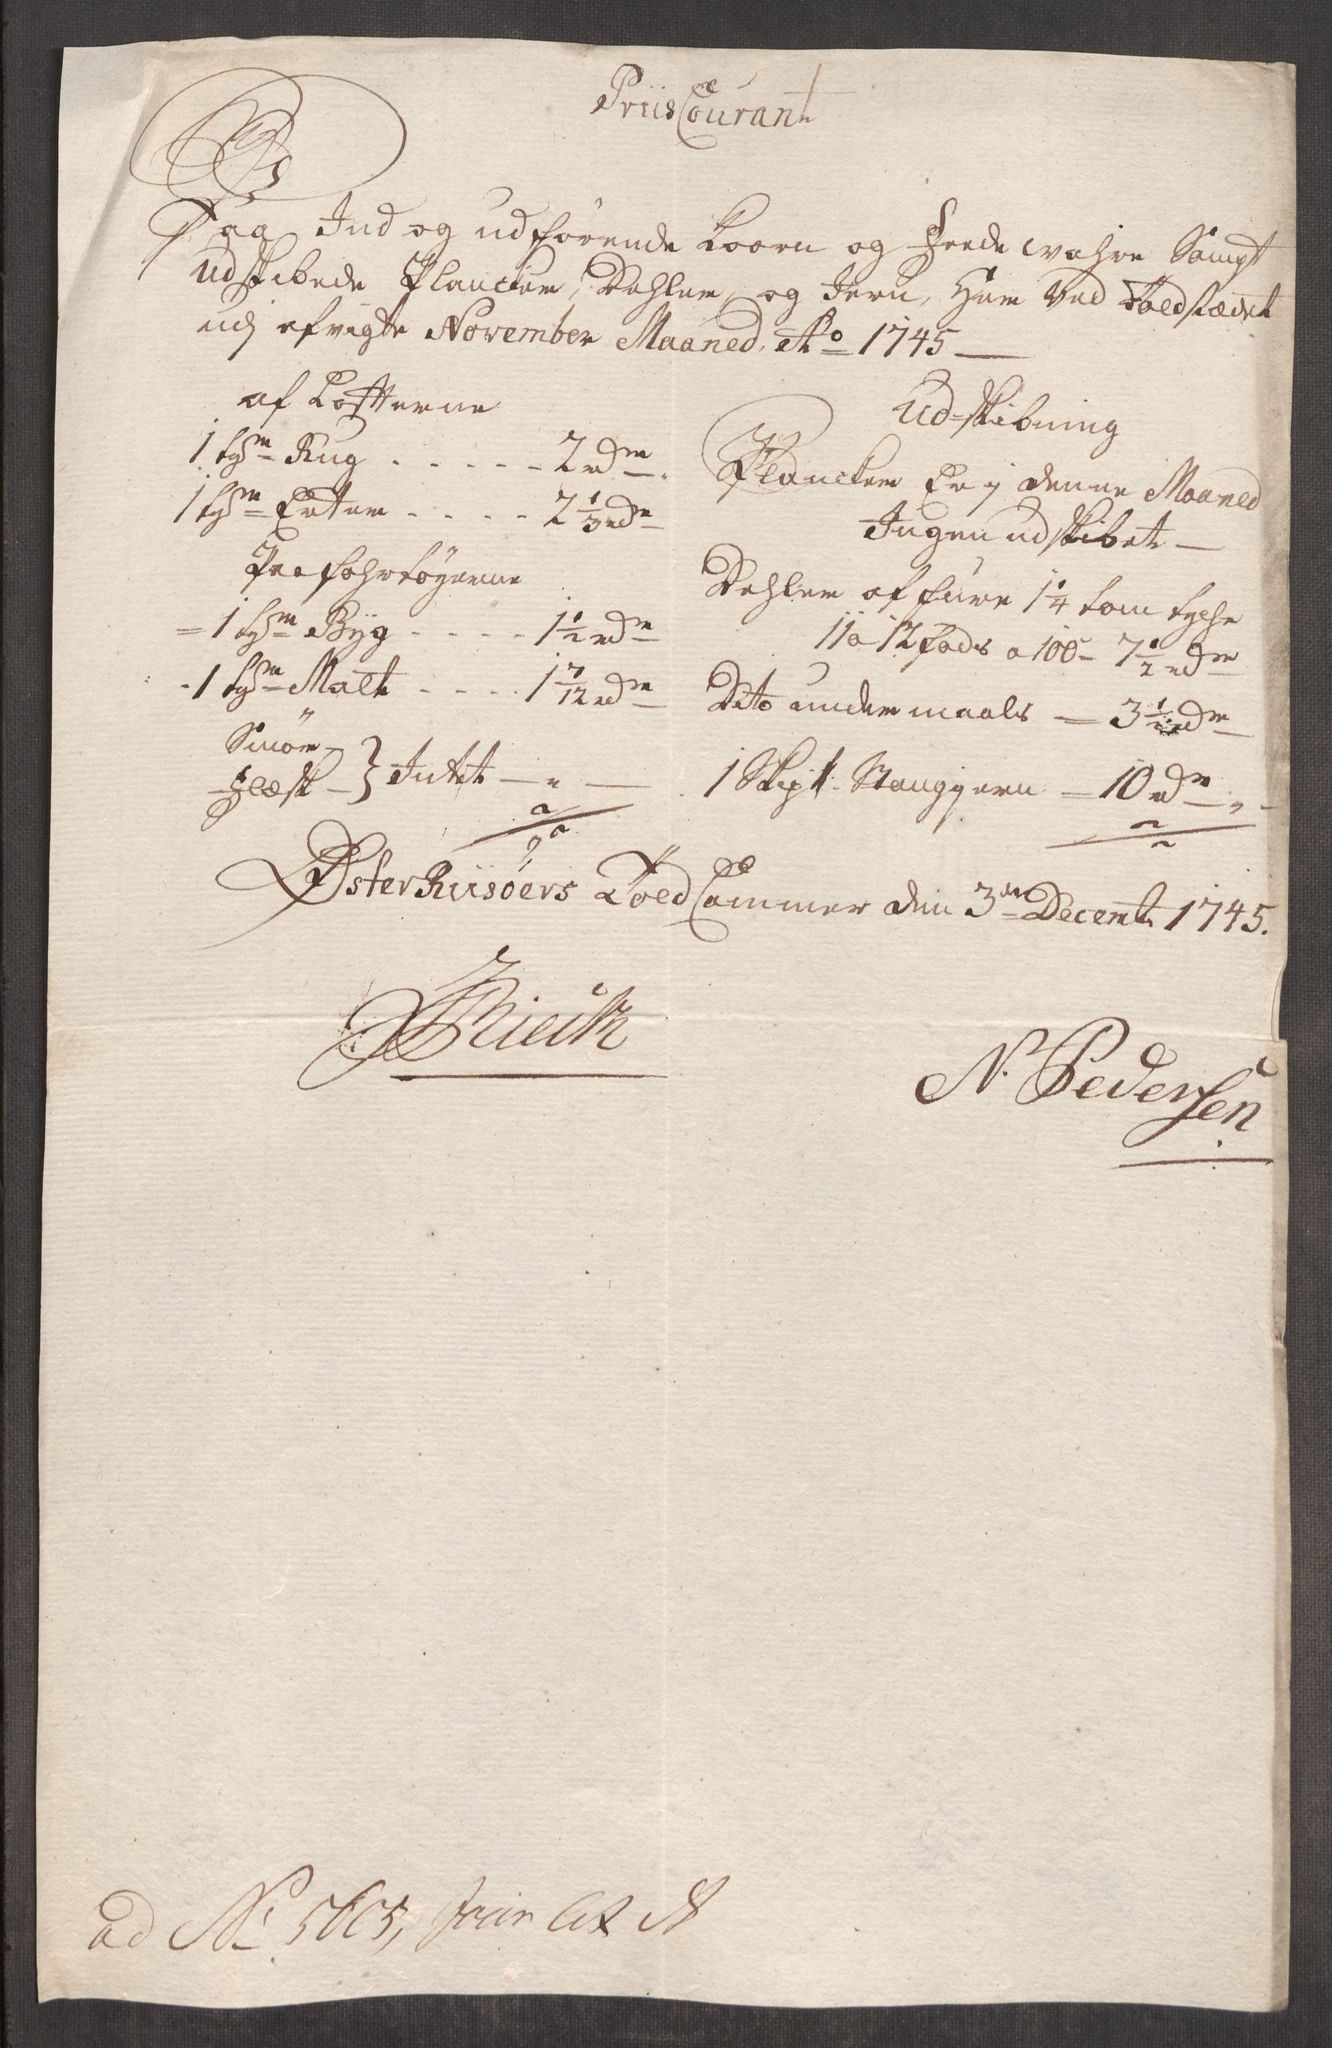 Priis Courant
Paa Ind og udførende Koorn og Feede wahre Sampt
Udskibede Plancker, Dehler, og Jern, Her ved Toldstædet
udj afvigte November Maaned, Ao 1745
af Lofterne
1 tøn Rug . . . . . 2 rdr
1 tøn Erter . . . . 2 1/3 rdr
Paa fahrtøyerne
1 tøn Byg . . . . 1 1/2 rdr
1 tøn Malt . . . . 1 7/12 rdr
Smör
Flesk } Intet
Ud-skibning
Plancker Er j denne Maaned
Ingen udskibet
Dehler af furre 1 1/4 tom tyche
11 a 12 fods a 100 - 7 1/2 rdr
Dito under maals - 3 1/2 rdr
1 Skip. Stangjern - 10 rdr
ØsterRiisøers Told Cammer den 3de Decemb. 1745.
N. Pedersen
ad No 5605,